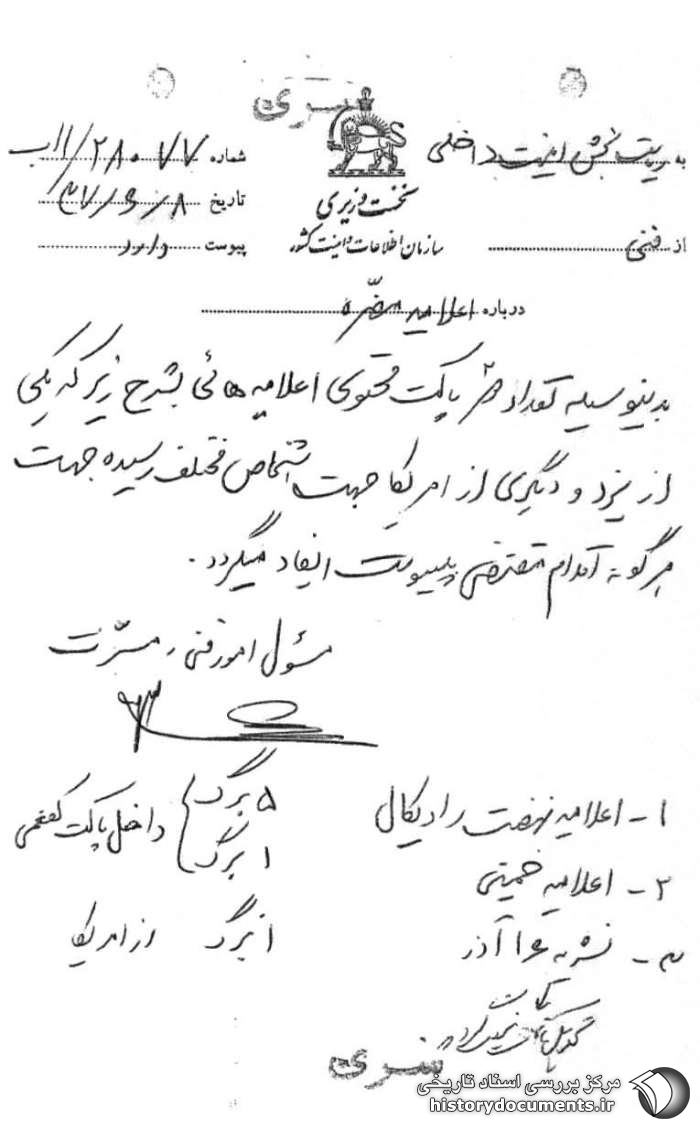 سری
به ریاست بخش امنیت داخلی
از فنی
نخست وزیری
سازمان اطلاعات و امنیت کشور
شماره ۲۸۰۷۷/۱۱ب
تاریخ ۴۷/۶/۸
پیوست دارد
درباره اعلامیه مضره
بدینوسیله تعداد ۲ پاکت محتوی اعلامیه هائی بشرح زیر که یکی
از یزد و دیگری از امریکا جهت اشخاص مختلف رسیده جهت
هرگونه اقدام مقتضی بپیوست ایفاد میگردد.
مسئول امور فنی. مسرت
۱- اعلامیه نهضت رادیکال ۵ برگ
۲- اعلامیه خمینی ۱ برگ
داخل پاکت
۳- نشریه ۱۶ آذر ۱ برگ از امریکا
سری
مرکز بررسی اسناد تاریخی
historydocuments.ir